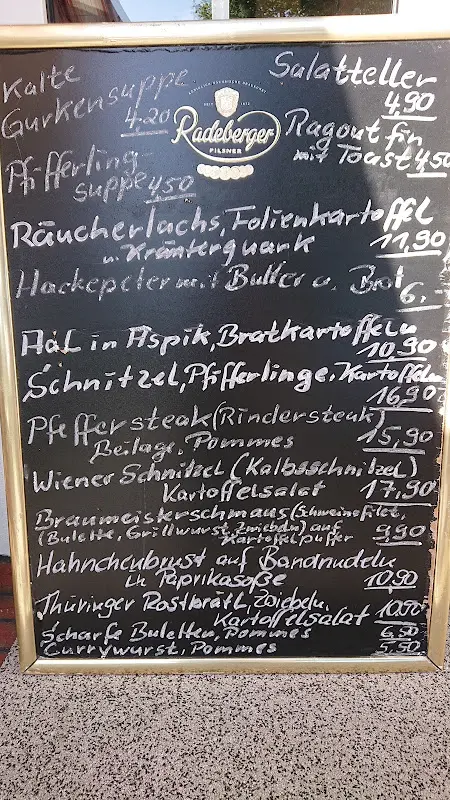 Kalte
Gurkensuppe
4,20
Salatteller
4,90
Radeberger
PILSNER
Ragout fin
mit Toast 4,50
Pfifferling-
suppe 4,50
Räucherlachs, Folienkartoffel
u. Kräuterquark 11,90
Hackepeter mit Butter u. Brot
6,-
Aal in Aspik, Bratkartoffeln
10,90
Schnitzel, Pfifferlinge, Kartoffeln
16,90
Pfeffersteak (Rindersteak)
Beilage, Pommes 15,90
Wiener Schnitzel (Kalbsschnitzel)
Kartoffelsalat 17,90
Braumeisterschmaus (Schweinefilet,
(Bulette, Grillwurst, Zwiebeln) auf
Kartoffelpuffer 9,90
Hähnchenbrust auf Bandnudeln
in Paprikasoße 10,90
Thüringer Rostbrätl, Zwiebeln,
Kartoffelsalat 10,50
Scharfe Buletten, Pommes 6,50
Currywurst, Pommes 5,50